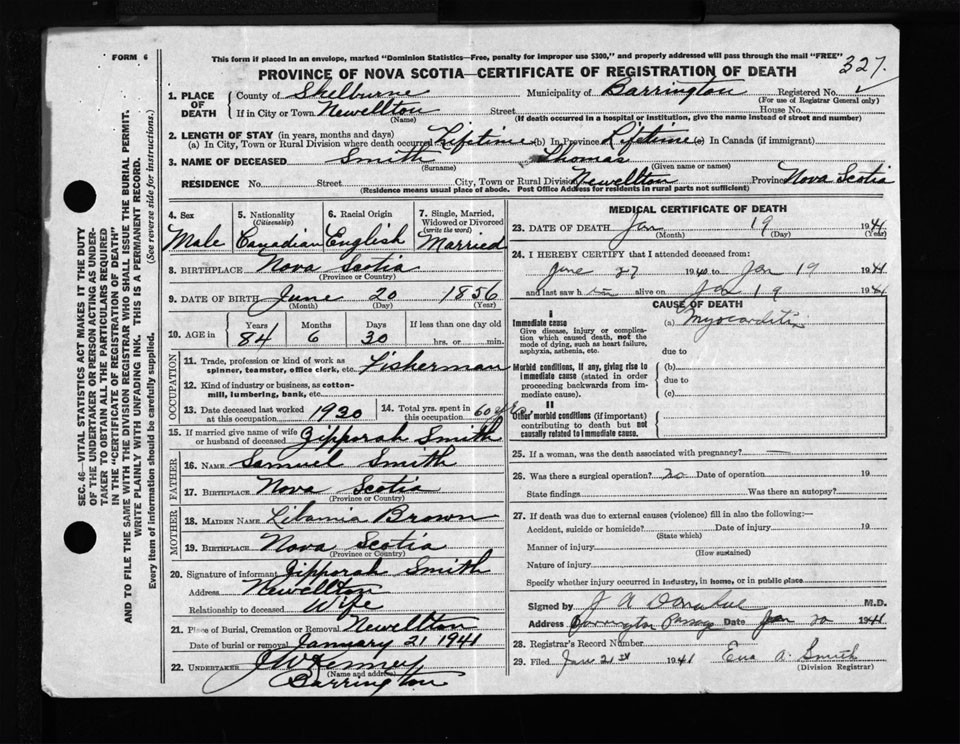 FORM 6
This form if placed in an envelope, marked "Dominion Statistics—Free, penalty for improper use $300," and properly addressed will pass through the mail "FREE"
327
PROVINCE OF NOVA SCOTIA—CERTIFICATE OF REGISTRATION OF DEATH
1. PLACE OF DEATH
County of Shelburne Municipality of Barrington Registered No.
(For use of Registrar General only)
If in City or Town Newellton Street House No.
(Name) (If death occurred in a hospital or institution, give the name instead of street and number)
2. LENGTH OF STAY (in years, months and days)
(a) In City, Town or Rural Division where death occurred Lifetime (b) In Province Lifetime (c) In Canada (if immigrant)
3. NAME OF DECEASED Smith Thomas
(Surname) (Given name or names)
RESIDENCE No. Street City, Town or Rural Division Newellton Province Nova Scotia
(Residence means usual place of abode. Post Office Address for residents in rural parts not sufficient)
SEC. 46—VITAL STATISTICS ACT MAKES IT THE DUTY
OF THE UNDERTAKER OR PERSON ACTING AS UNDER-
TAKER TO OBTAIN ALL THE PARTICULARS REQUIRED
IN THE "CERTIFICATE OF REGISTRATION OF DEATH"
AND TO FILE THE SAME WITH THE DIVISION REGISTRAR WHO SHALL ISSUE THE BURIAL PERMIT.
WRITE PLAINLY WITH UNFADING INK. THIS IS A PERMANENT RECORD.
Every item of information should be carefully supplied. (See reverse side for instructions.)
4. Sex 5. Nationality 6. Racial Origin 7. Single, Married,
(Citizenship) Widowed or Divorced
(write the word)
Male Canadian English Married
8. BIRTHPLACE Nova Scotia
(Province or Country)
9. DATE OF BIRTH June 20 1856
(Month) (Day) (Year)
10. AGE in Years Months Days If less than one day old
84 6 30 hrs. or min.
OCCUPATION
11. Trade, profession or kind of work as
spinner, teamster, office clerk, etc. Fisherman
12. Kind of industry or business, as cotton-
mill, lumbering, bank, etc.
13. Date deceased last worked at this occupation 1930 14. Total yrs. spent in this occupation 60 yrs
15. If married give name of wife
or husband of deceased Zipporah Smith
FATHER
16. NAME Samuel Smith
17. BIRTHPLACE Nova Scotia
(Province or Country)
MOTHER
18. MAIDEN NAME Brown
19. BIRTHPLACE Nova Scotia
(Province or Country)
20. Signature of informant Zipporah Smith
Address Newellton
Relationship to deceased Wife
21. Place of Burial, Cremation or Removal Newellton
Date of burial or removal January 21 1941
22. UNDERTAKER J W Kenney
(Name and address)
Barrington
MEDICAL CERTIFICATE OF DEATH
23. DATE OF DEATH Jan 19 1941
(Month) (Day) (Year)
24. I HEREBY CERTIFY that I attended deceased from:
June 27 1940 to Jan 19 1941
and last saw h im alive on Jan 19 1941
CAUSE OF DEATH
I
Immediate cause (a) Myocarditis
Give disease, injury or complica-
tion which caused death, not the
mode of dying, such as heart failure,
asphyxia, asthenia, etc.
due to
Morbid conditions, if any, giving rise to (b)
immediate cause (stated in order
proceeding backwards from im-
mediate cause).
due to
(c)
II
Other morbid conditions (if important)
contributing to death but not
causally related to immediate cause.
25. If a woman, was the death associated with pregnancy?
26. Was there a surgical operation? no Date of operation 19
State findings Was there an autopsy?
27. If death was due to external causes (violence) fill in also the following:—
Accident, suicide or homicide? Date of injury 19
(State which)
Manner of injury
(How sustained)
Nature of injury
Specify whether injury occurred in industry, in home, or in public place
Signed by J A Donahue M.D.
Address Barrington Passage Date Jan 20 1941
28. Registrar's Record Number
29. Filed Jan 21st 1941 A. Smith
(Division Registrar)